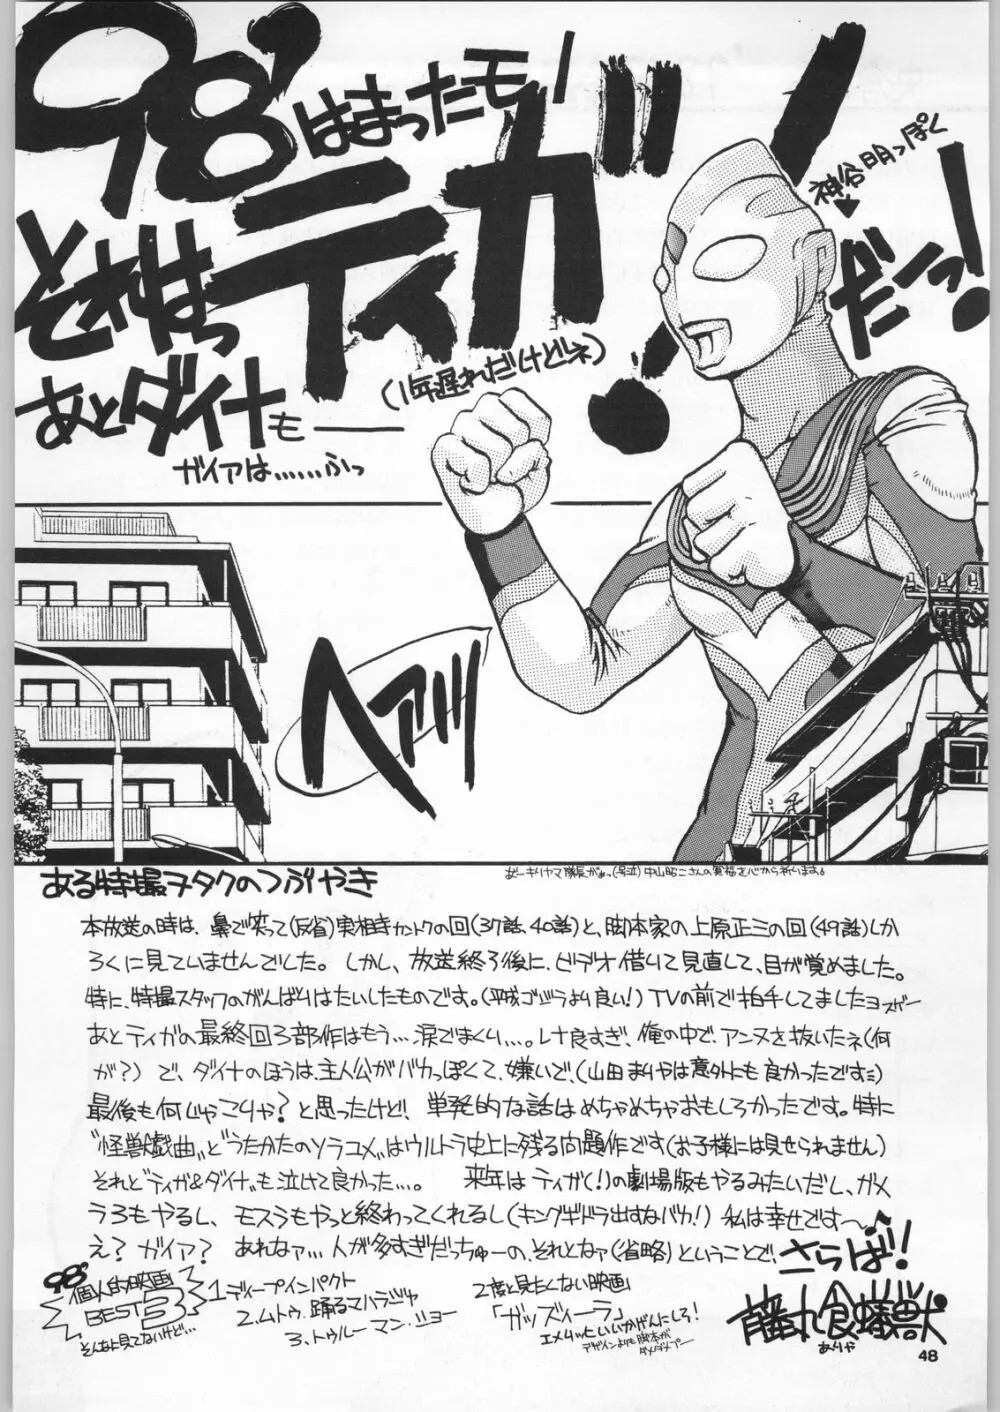 98'はまったモノ!
それはっ
ティガ!
だーっ!
神谷明っぽく
(1年遅れだけどネ)
あとダイナも――
ガイアは……ふっ
ヘアッ!!
ある特撮ヲタクのつぶやき
あーキリヤマ隊長がぁ、(号泣)中山昭二さんの冥福を心から祈います。
本放送の時は、鼻で笑って(反省)実相寺カントクの回(37話、40話)と、脚本家の上原正三の回(49話)しか
ろくに見ていませんでした。しかし、放送終了後に、ビデオ借りて見直して、目が覚めました。
特に、特撮スタッフのがんばりはたいしたものです。(平成ゴジラより良い!)TVの前で拍手してましたヨスゲー
あとティガの最終回3部作はもう…涙でまくり…。レナ良すぎ、俺の中で、アンヌを抜いたネ(何
が?)で、ダイナのほうは、主人公がバカっぽくて、嫌いで、(山田まりやは意外にも良かったですミ)
最後も何じゃこりゃ?と思ったけど、単発的な話はめちゃめちゃおもしろかったです。特に
"怪獣戯曲"と"うたかたのソラユメ"はウルトラ史上に残る問題作です(お子様には見せられません)
それと"ティガ&ダイナ"も泣けて良かった…。来年はティガ(!)の劇場版もやるみたいだし、ガメ
ラ3もやるし、モスラもやっと終わってくれるし(キングギドラ出すなバカ!)私は幸せです〜♪
え?ガイア?あれなァ…人が多すぎだっちゅーの、それとなァ(省略)ということで、さらば!!
98'個人的映画BEST3
そんなに見てないけど…
1.ディープインパクト
2.ムトゥ踊るマハラジャ
3.トゥルーマン・ショー
2度と見たくない映画
「ガッズィーラ」
エメリッヒいいかげんにしろ!
デザインよりも脚本がダメダメプー
食蟻獣
ありくい
48